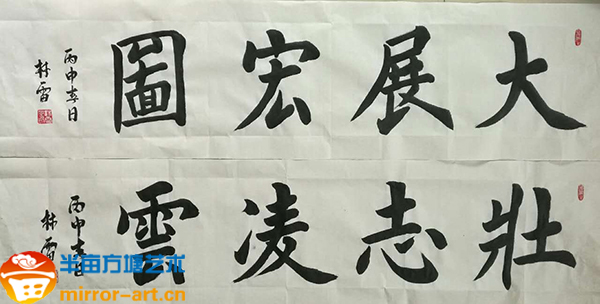 大展宏圖
丙申春日
林雷
壯志凌雲
丙申春日
林雷
半亩方塘艺术
mirror-art.cn